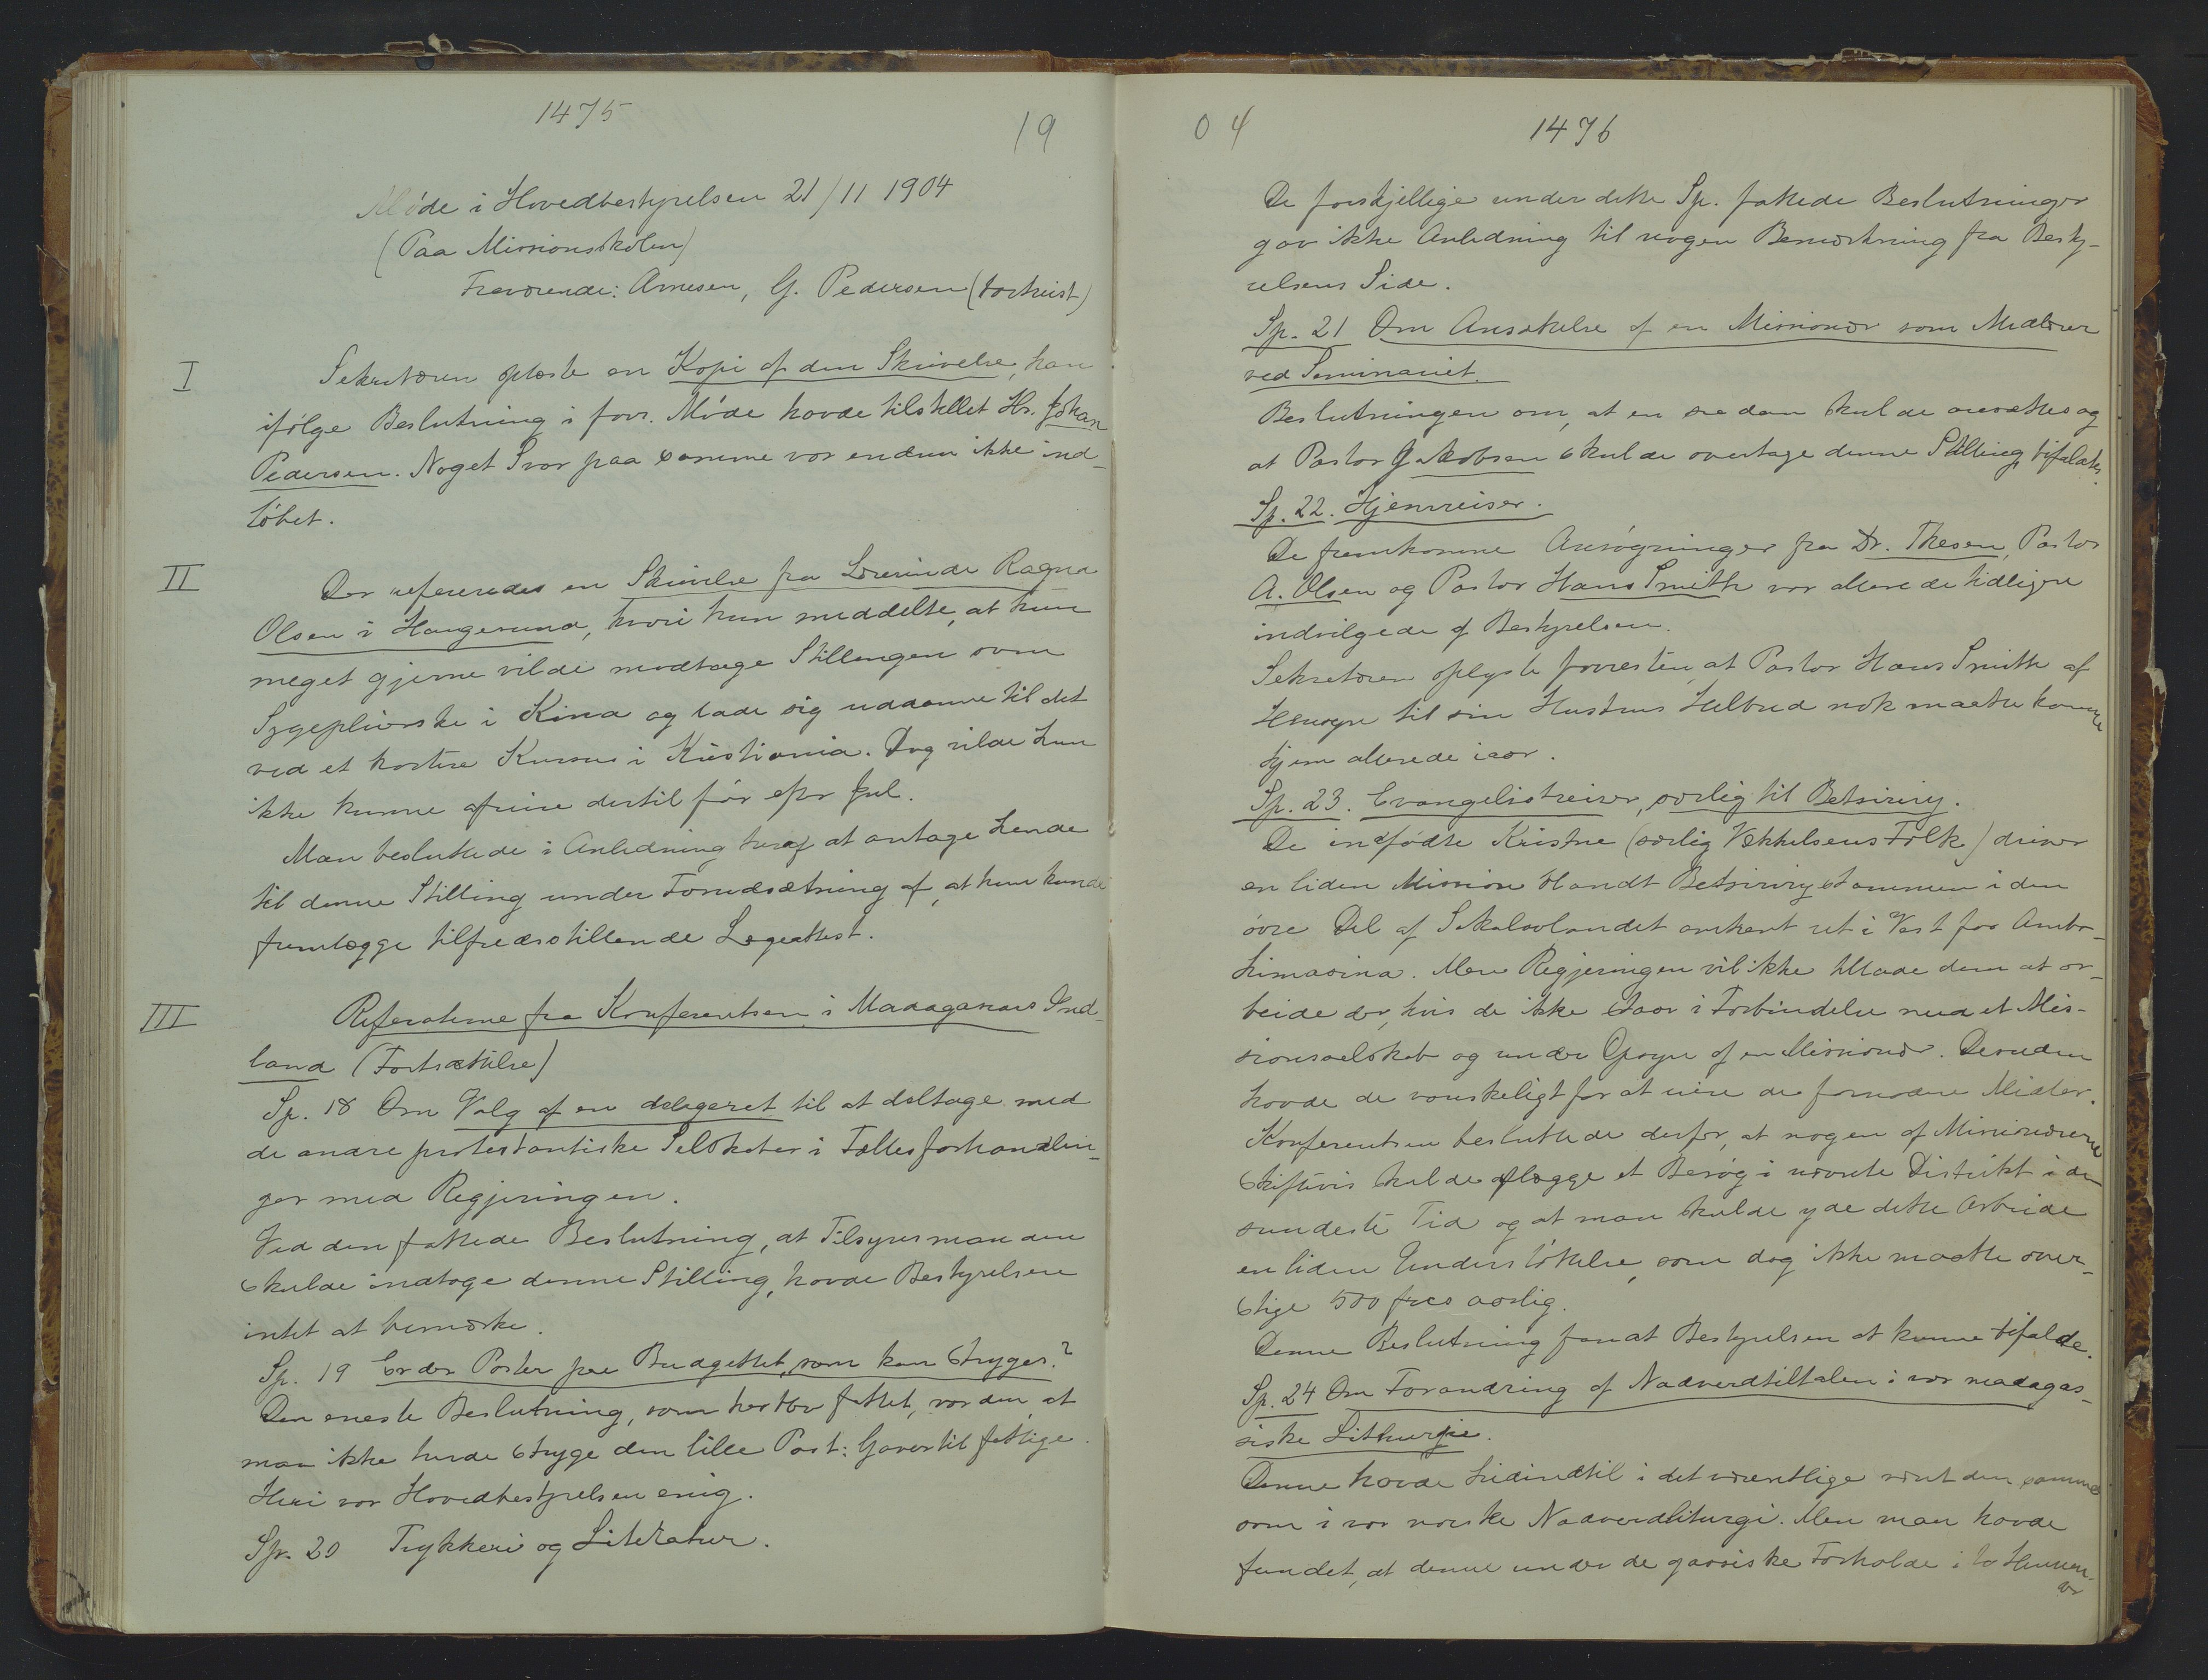 1475
19
Møde i Hovedbestyrelsen 21/11 1904
(Paa Missionsskolen)
Fraværende: Arnesen, G. Pedersen (bortreist)
I
Sekretæren oplæste en Kopi af den Skrivelse, han
ifølge Beslutning i forr. Møde havde tilstillet Hr. Johan
Pedersen. Noget Svar paa samme var endnu ikke ind-
løbet.
II
Der refereredes en Skrivelse fra Lærerinde Ragna
Olsen i Haugesund, hvori hun meddelte, at hun
meget gjerne vilde modtage Stillingen som
Sygepleierske i Kina og lade sig uddanne til det
ved et kortere Kursus i Kristiania. Dog vilde hun
ikke kunne afreise dertil før efter Jul.
Man besluttede i Anledning heraf at antage hende
til denne Stilling under Forudsætning af, at hun kunde
fremlægge tilfredsstillende Lægeattest.
III
Referaterne fra Konferentsen i Madagaskars Ind-
land (Fortsættelse)
Sp. 18 Om Valg af en delegeret til at deltage med
de andre protestantiske Selskaber i Fællesforhandlin-
ger med Regjeringen.
Ved den fattede Beslutning, at Tilsynsmanden
skulde indtage denne Stilling, havde Bestyrelsen
intet at bemærke.
Sp. 19 Er der Poster paa Budgettet, som kan stryges?
Den eneste Beslutning, som her blev fattet, var den, at
man ikke burde stryge den lille Post: Gaver til fattige.
Heri var Hovedbestyrelsen enig.
Sp. 20 Trykkeri og Literatur.
04
1476
De forskjellige under dette Sp. fattede Beslutninger
gav ikke Anledning til nogen Bemærkning fra Besty-
relsens Side.
Sp. 21 Om Ansættelse af en Missionær som Medlærer
ved Seminariet.
Beslutningen om, at en saadan skulde ansættes og
at Pastor Jakobsen skulde overtage denne Stilling, bifaldtes.
Sp. 22. Hjemreiser.
De fremkomne Ansøgninger fra Dr. Thesen, Pastor
A. Olsen og Pastor Hans Smith var allerede tidligere
indvilgede af Bestyrelsen.
Sekretæren oplyste forresten, at Pastor Hans Smith af
Hensyn til sin Hustrus Helbred nok maatte komme
hjem allerede iaar.
Sp. 23. Evangelistreiser, særlig til Betsiriry.
De indfødte Kristne (særlig Vækkelsens Folk) driver
en liden Mission blandt Betsirirystammen i den
øvre Del af Sakalavlandet omkent ret i Vest for Ambo-
himasina. Men Regjeringen vil ikke tillade dem at ar-
beide der, hvis de ikke staar i Forbindelse med et Mis-
sionsselskab og under Opsyn af en Missionær. Desuden
havde de vanskeligt for at reise de fornødne Midler.
Konferentsen besluttede derfor, at nogen af Missionærerne
skiftevis skulde aflægge et Besøg i nævnte Distrikt i den
sundeste Tid og at man skulde yde dette Arbeide
en liden Understøttelse, som dog ikke maatte over-
stige 500 frcs aarlig.
Denne Beslutning fandt Bestyrelsen at kunne bifalde.
Sp. 24 Om Forandring af Nadverdtiltalen i vor madagas-
siske Lithurgie.
Denne havde hidindtil i det væsentlige været den samme
som i vor norske Nadverdliturgi. Men man havde
fundet, at denne under de gassiske Forholde i to Henseen-
der